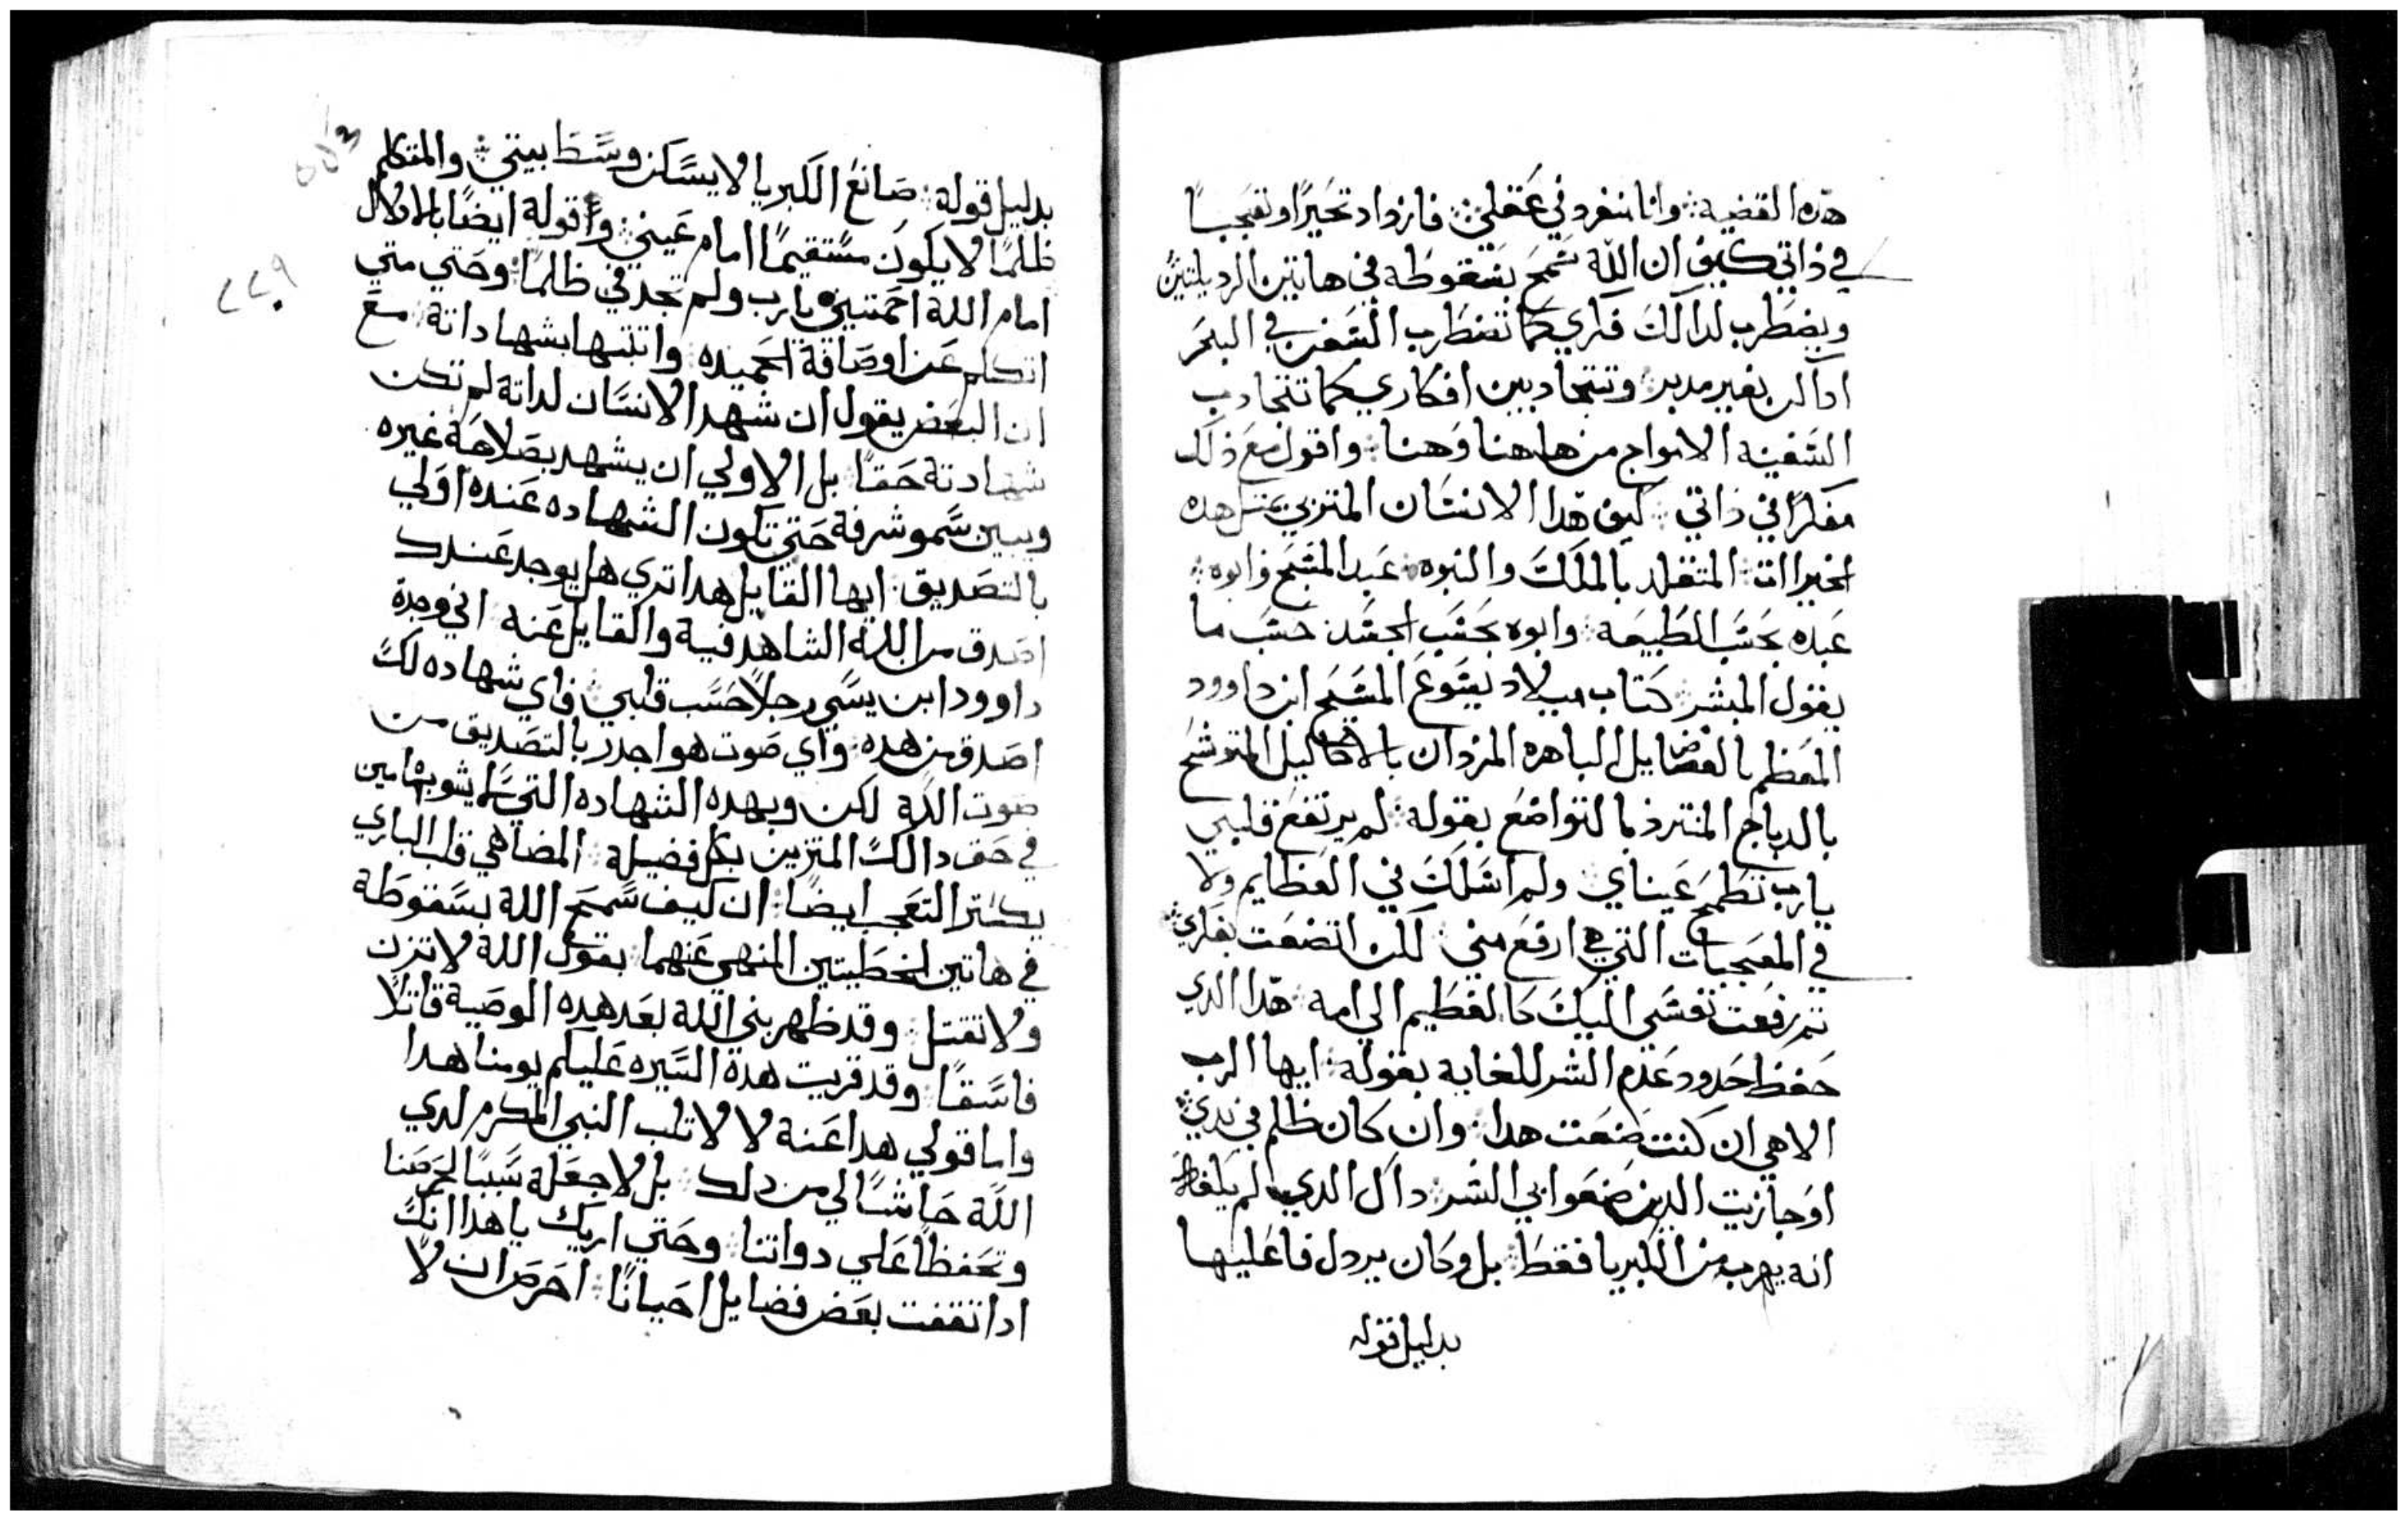 هده القضيه: وانا منفرد في عقلي: فازداد تحيرًا وتعجبًا
في ذاتي كيف ان الله سمح بسقوطه في هاتين الرديلتين
ويضطرب لدالك فكري كما تضطرب السفن في البحر
اداكان بغير مدبر: وتتجادبين افكاري كما تتجادب
السفينه الامواج من هاهنا وهنا: واقول مع ذلك
مفكرًا في ذاتي: كيف هدا الانسان المتزين بمثل هده
الخيراات: المتقلد بالملك والنبوه: عبد المسيح وابوه:
عبده بحسب الطبيعه: وابوه بحسب الجسد: حسب ما
يقول المبشر: كتاب ميلاد يسوع المسيح ابن داوود
المعظم بالفضايل الباهره المزدان بالاكاليل المتوشح
بالديباج المتردي بالتواضع بقوله: لم يرتفع قلبي
يارب تطمح عيناي: ولم اسلك في العظايم ولا
في المعجبات التي هي ارفع مني: لكن اتضعت بفكري:
تم رفعت نفسي اليك كالفطيم الي امه: هدا الدي
حفظ حدود عدم الشر للغايه بقوله: ايها الرب
الاهي ان كنت صنعت هدا: وان كان ظلم في يدي:
او جازيت الدين صنعوا بي الشر: داك الدي لم يكفاه
انه يهرب من الكبريا فقط: بل وكان يردل فاعليها
بدليل قوله
بدليل قوله: صانع الكبريا لا يسكن وسط بيتي: والمتكلم
ظلمًا لا يكون مستقيمًا امام عيني: واقوله ايضًا بالادلال
امام الله امتحنيني يارب ولم تجد في ظلمًا: وحتي متي
اتكلم عن اوصافة الحميده: واتبتها بشهاداتة: مع
ان البعض يقول ان شهد الانسان لداتة لم تكن
شهادتة حقًا: بل الاولي ان يشهد بصلاحة غيره
ويبين سمو شرفة حتي تكون الشهاده عنده اولي
بالتصديق: ايها القايل هدا تري هل يوجد عندك
اصدق من الله الشاهد فية والقايل عنه: اني وجدة
داوود ابن يسي رجلاً حسب قلبي: فاي شهاده لك
اصدق من هده: واي صوت هو اجدر بالتصديق من
صوت الله: لكن وبهده الشهاده التي لم يشوبها مين
في حق دالك المتزين بكل فضيلة: المضاهي قلب الباري
يكتر التعجب ايضًا: ان كيف سمح الله بسقوطة
في هاتين الخطيتين المنهي عنهما: بقول الله لا تزن
ولا تقتل: وقد ظهر بني الله بعد هده الوصية قاتلاً
فاسقًا: وقد قريت هدة السيره عليكم يومنا هدا
واما قولي هدا عنة لا لاتلب النبي المكرم لدي
الله حاشا لي من دلك: بل لاجعلة سببًا لحرصنا
وتحفظًا علي دواتنا: وحتي اريك يا هدا انك
ادا تقفت بعض فضايل احيانًا: احرص ان لا
٢٢٩